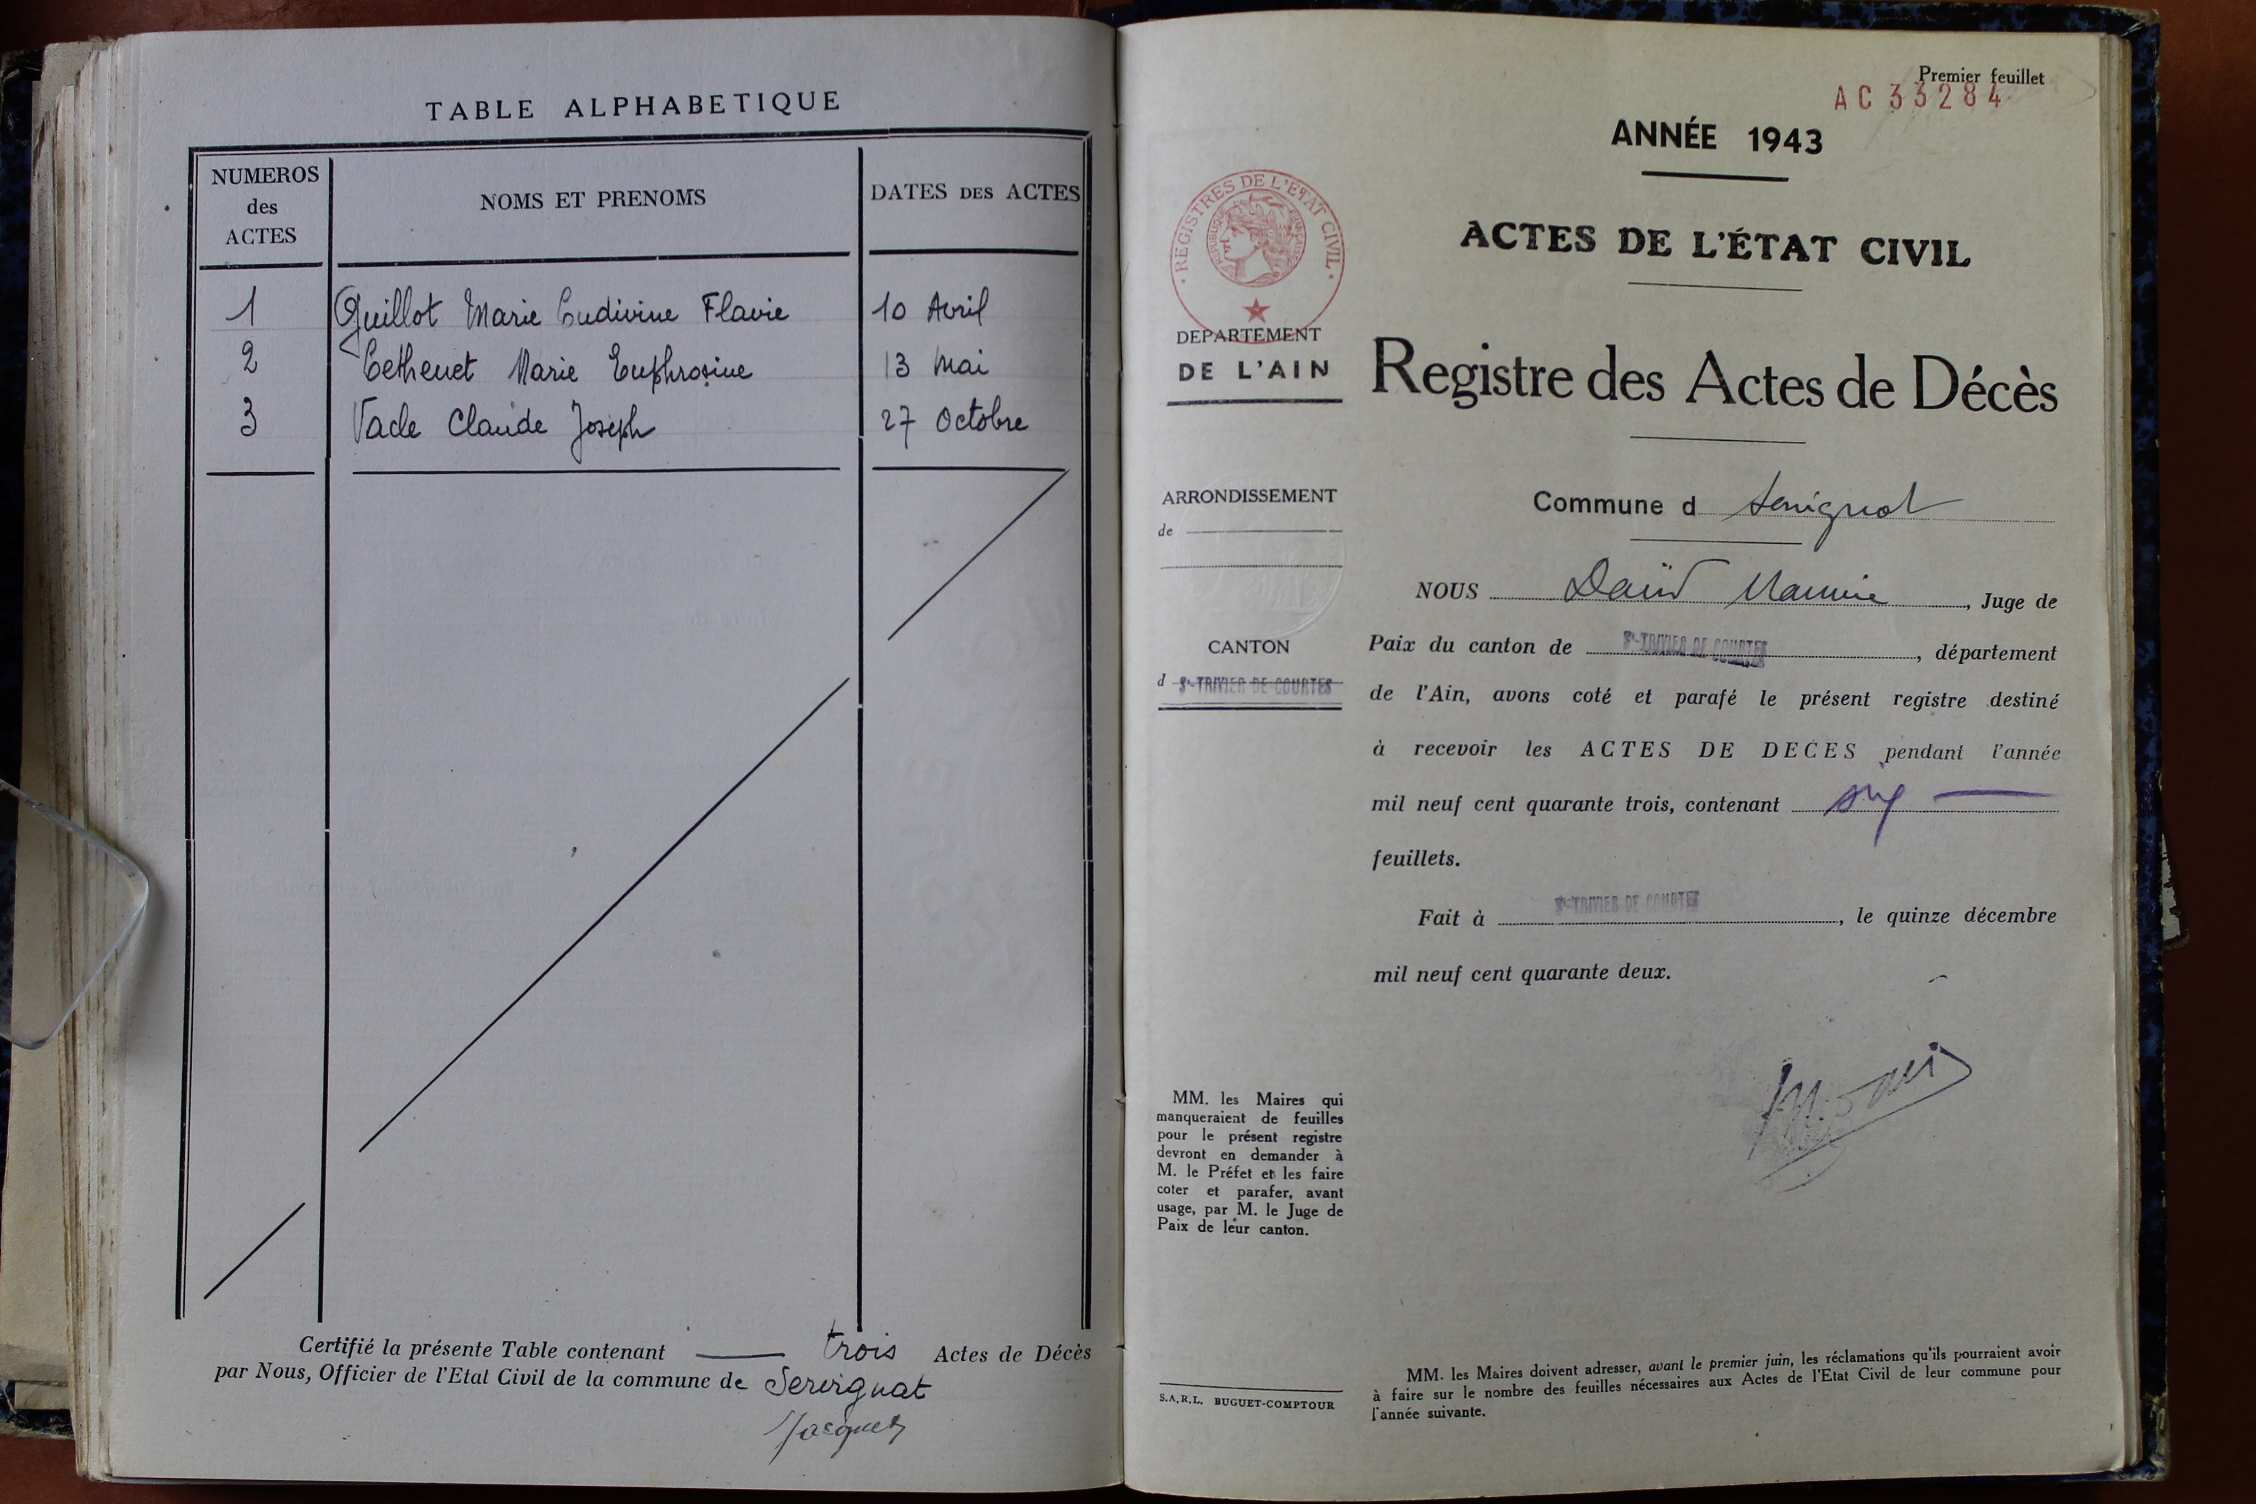 TABLE ALPHABETIQUE
NUMEROS
des
ACTES
NOMS ET PRENOMS
DATES DES ACTES
1 Guillot Marie Ludivine Flavie 10 Avril
2 Cethenet Marie Euphrosine 13 Mai
3 Vacle Claude Joseph 27 Octobre
Certifié la présente Table contenant trois Actes de Décès
par Nous, Officier de l'Etat Civil de la commune de Servignat
Jacquet
Premier feuillet
AC 33284
ANNÉE 1943
ACTES DE L'ÉTAT CIVIL
REGISTRES DE L'ETAT CIVIL
REPUBLIQUE FRANCAISE
DEPARTEMENT
DE L'AIN
Registre des Actes de Décès
ARRONDISSEMENT
de
Commune d Servignat
NOUS David Maurice, Juge de
CANTON
d St-TRIVIER DE COURTES
Paix du canton de St-TRIVIER DE COURTES, département
de l'Ain, avons coté et parafé le présent registre destiné
à recevoir les ACTES DE DECES pendant l'année
mil neuf cent quarante trois, contenant six
feuillets.
Fait à St-TRIVIER DE COURTES, le quinze décembre
mil neuf cent quarante deux.
MM. les Maires qui
manqueraient de feuilles
pour le présent registre
devront en demander à
M. le Préfet et les faire
coter et parafer, avant
usage, par M. le Juge de
Paix de leur canton.
S.A.R.L. BUGUET-COMPTOUR
MM. les Maires doivent adresser, avant le premier juin, les réclamations qu'ils pourraient avoir
à faire sur le nombre des feuilles nécessaires aux Actes de l'Etat Civil de leur commune pour
l'année suivante.